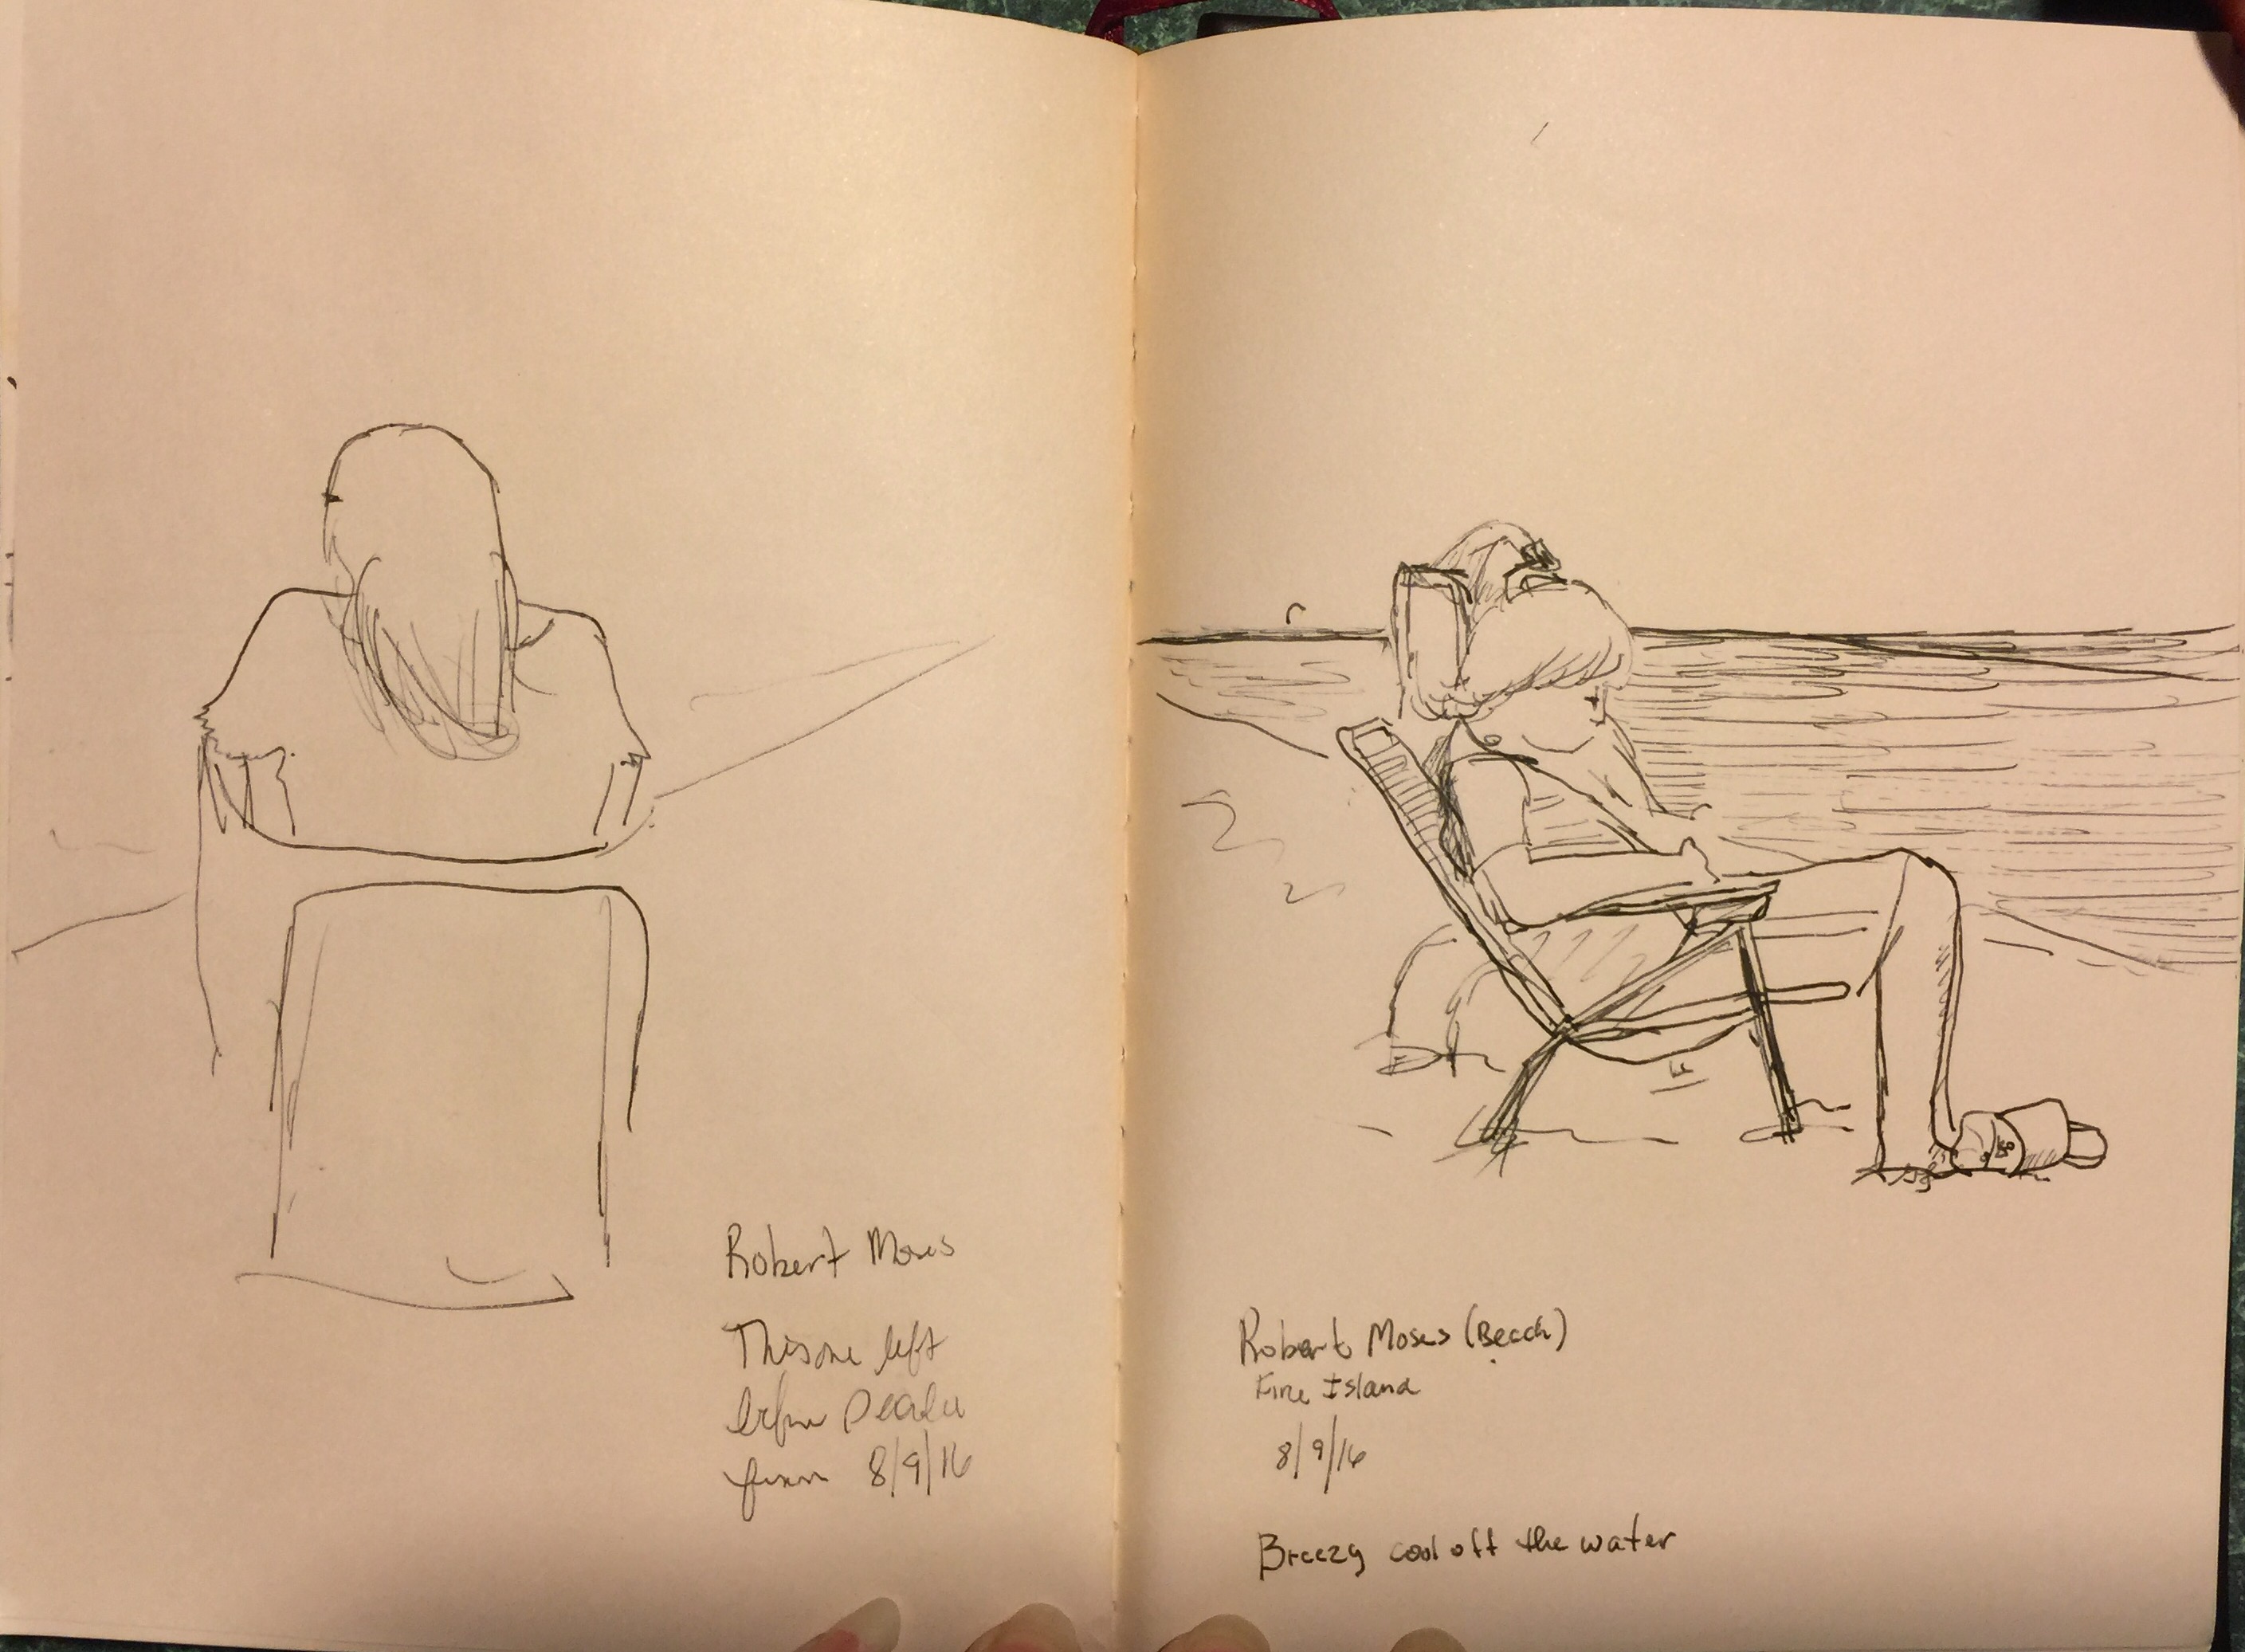 Robert Moses
This one left
before
8/9/16
Robert Moses (Beach)
Fire Island
8/9/16
Breezy cool off the water